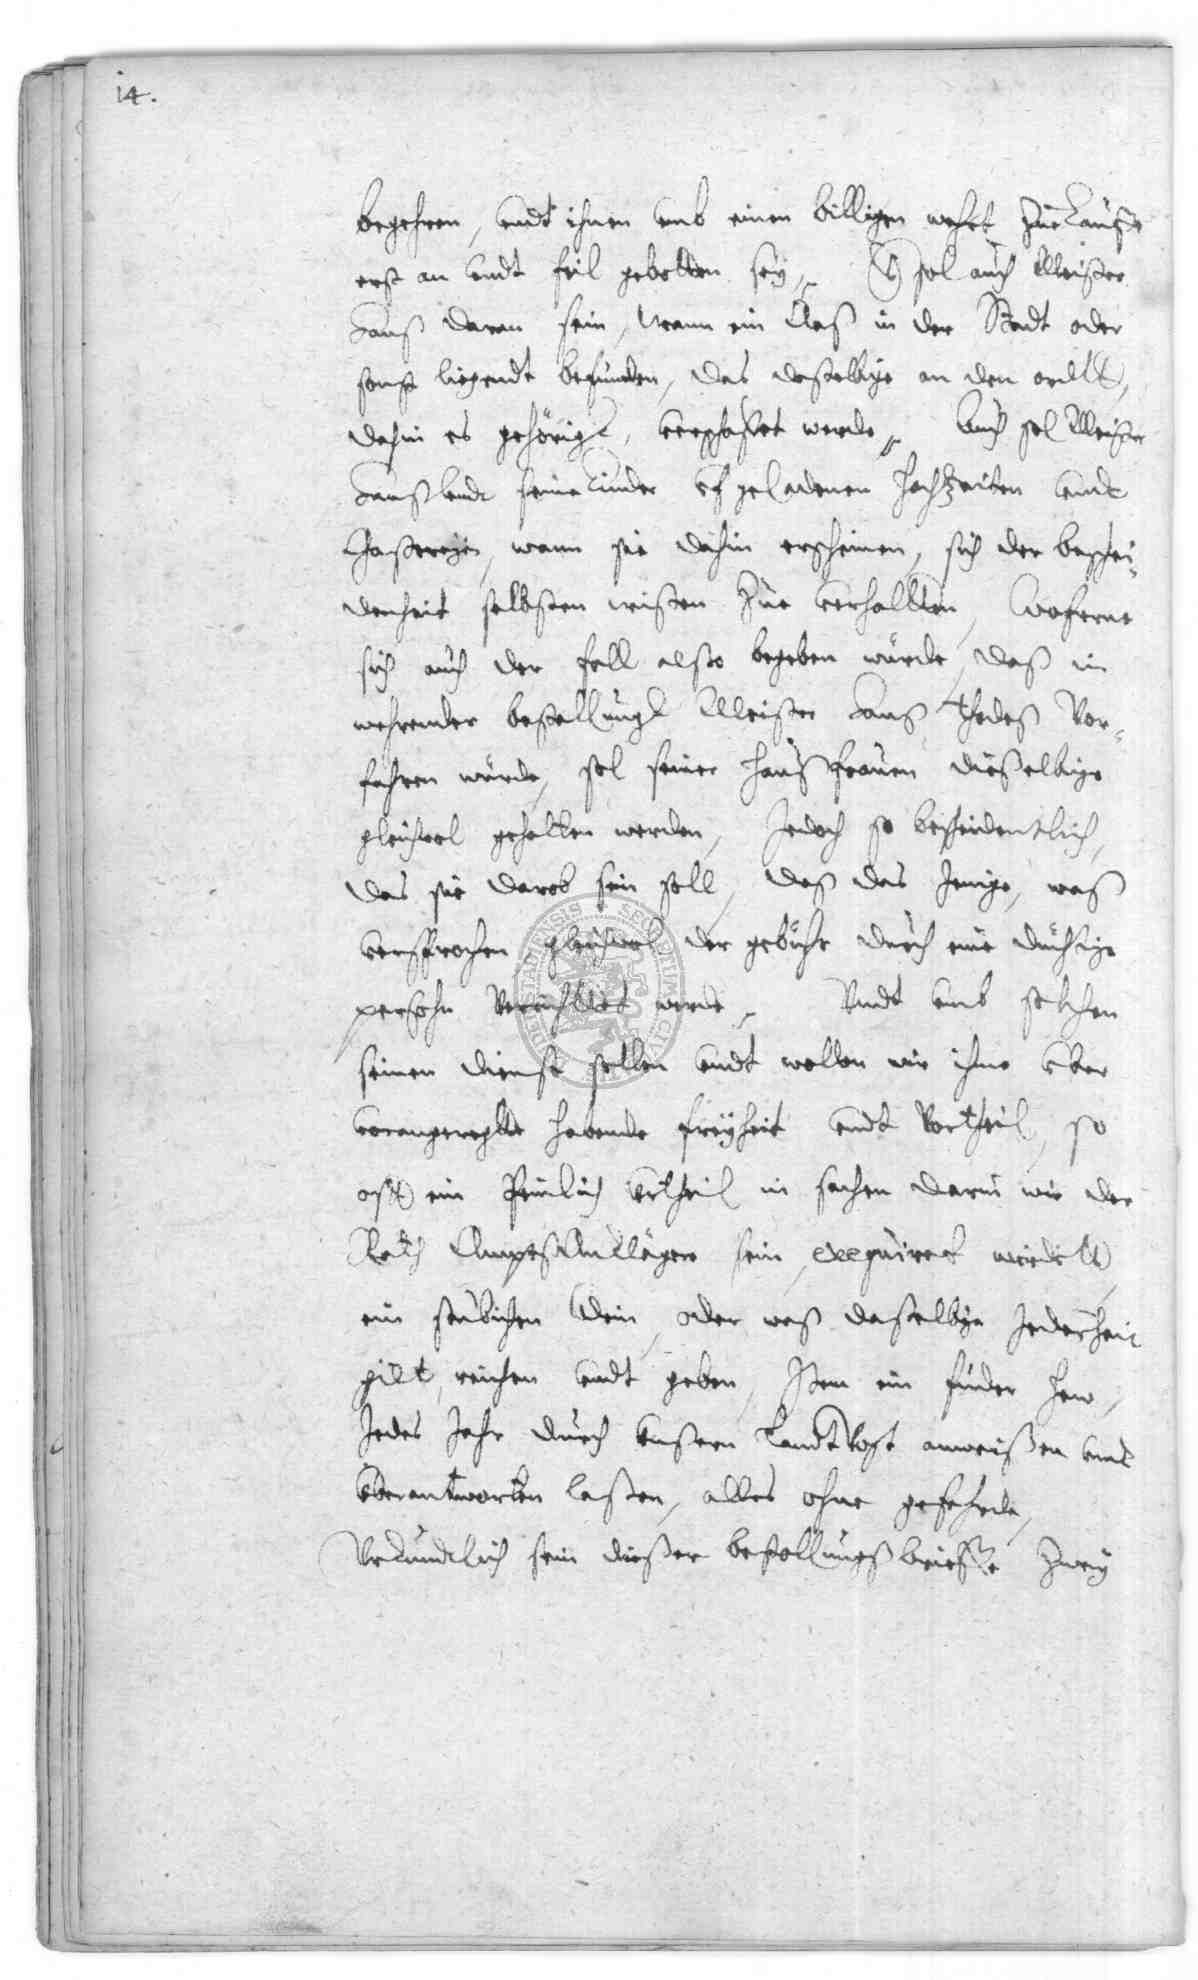 14.
begehren, undt ihnen umb einen billigen wehrt zue kauffe
erst an undt feil gebotten sey, Es sol auch Meister
Hans daran sein, wann ein Aaß in der Stadt oder
sonst liegendt befunden, das dasselbige an den ordtt,
dahin es gehörigt, verschaffet werde, Auch sol Meister
Hanß undt seine Kinder uf geladenen Hochzeiten undt
Gastereyen, wann sie dahin erscheinen, sich der beschei-
denheit selbsten wissen zue verhaltten, Woferne
sich auch der fall also begeben würde, daß in
wehrender bestallungk Meister Hans thodes Vor-
fahren würde, sol seiner haußfrauen dieselbige
gleichwol gehalten werden, Jedoch so bescheidentlich,
das sie darob sein soll, daß das Jenige, waß
versprochen gleichwol der gebühr durch eine düchtige
persohn Verrichttet werde, Undt umb solchen
seinen dienst sollen undt wollen wir ihme uber
vorangeregtte habende freyheit undt Vortheil, so
offt ein Peinlich Urtheil in sachen darin wir der
Rath Ampts Ankläger sein, exequiret wirdtt,
ein stübichen Wein, oder was dasselbige Jederzeit
gilt, reichen undt geben, Item ein fuder Hew,
Jedes Jahr durch unsern Landtvogt anweisen undt
uberantworten lassen, alles ohne gefehrde,
Uhrkundtlich sein dieser bestallungsbrieffe zwey